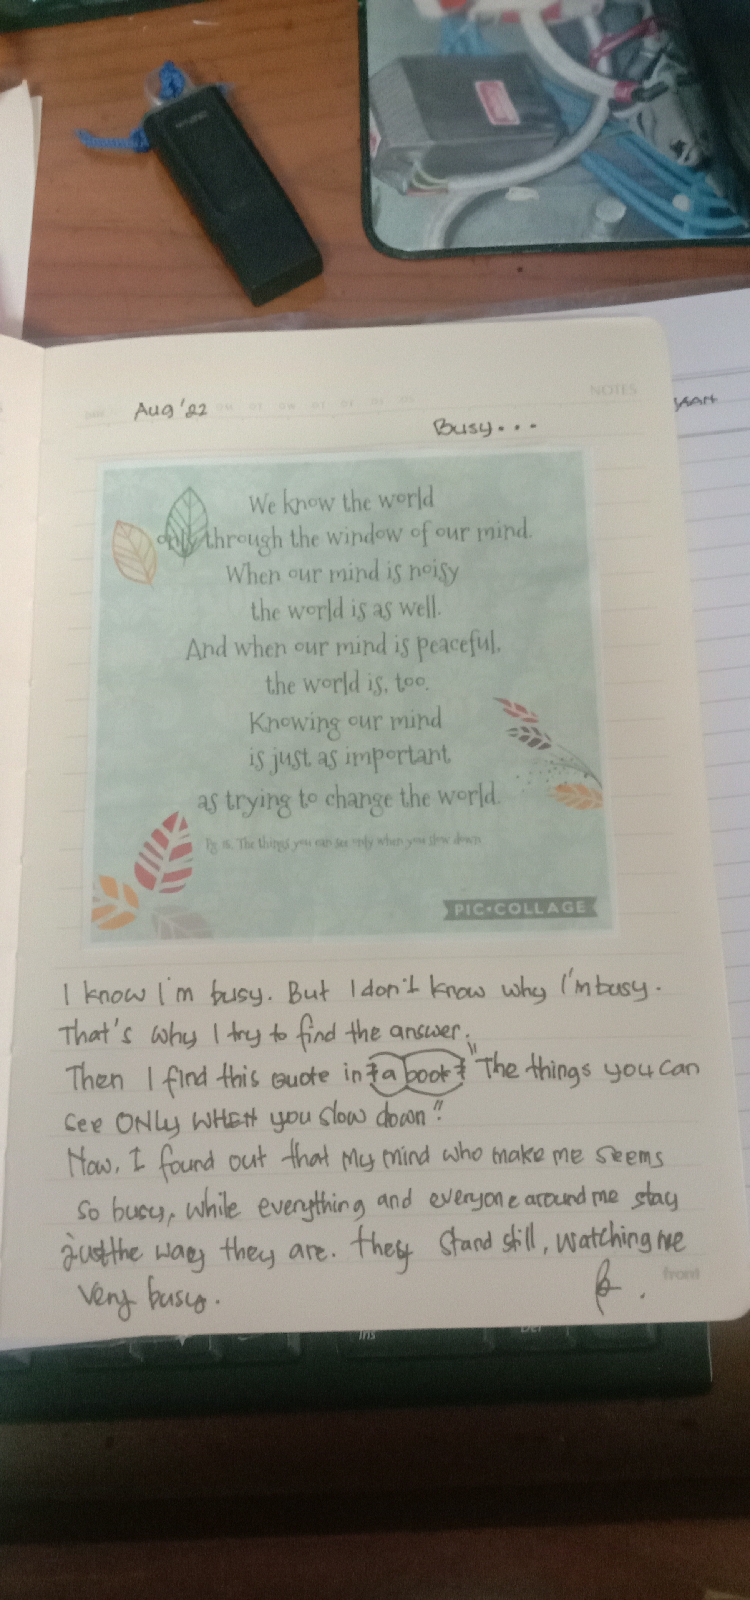 NOTES
Aug '22
Busy...
We know the world
only through the window of our mind.
When our mind is noisy
the world is as well.
And when our mind is peaceful,
the world is, too.
Knowing our mind
is just as important
as trying to change the world.
The things you can see only when you slow down
PIC•COLLAGE
I know I'm busy. But I don't know why I'm busy.
That's why I try to find the answer.
Then I find this quote in a book "The things you can
see ONLY WHEN you slow down"
Now, I found out that my mind who make me seems
so busy, while everything and everyone around me stay
just the way they are. they stand still, watching me
very busy.
front
Ins